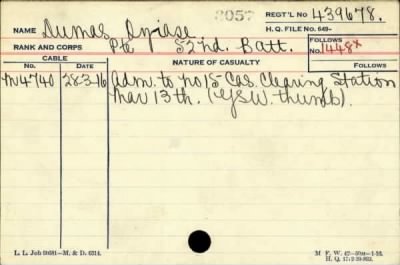 3057 REGT'L NO 439678.
NAME Dumas H. Q. FILE NO. 649-
RANK AND CORPS Pte 52nd. Batt. FOLLOWS NO. 1448x
CABLE NATURE OF CASUALTY
NO. DATE FOLLOWS
M4740 28-3-16 Adm. to no 15 Cas. Clearing Station
Mar 13th. (GSW. thumb).
L. L. Job 50681—M. & D. 6314. M. F. W. 42—50M—1-16.
H. Q. 17-2-39-893.